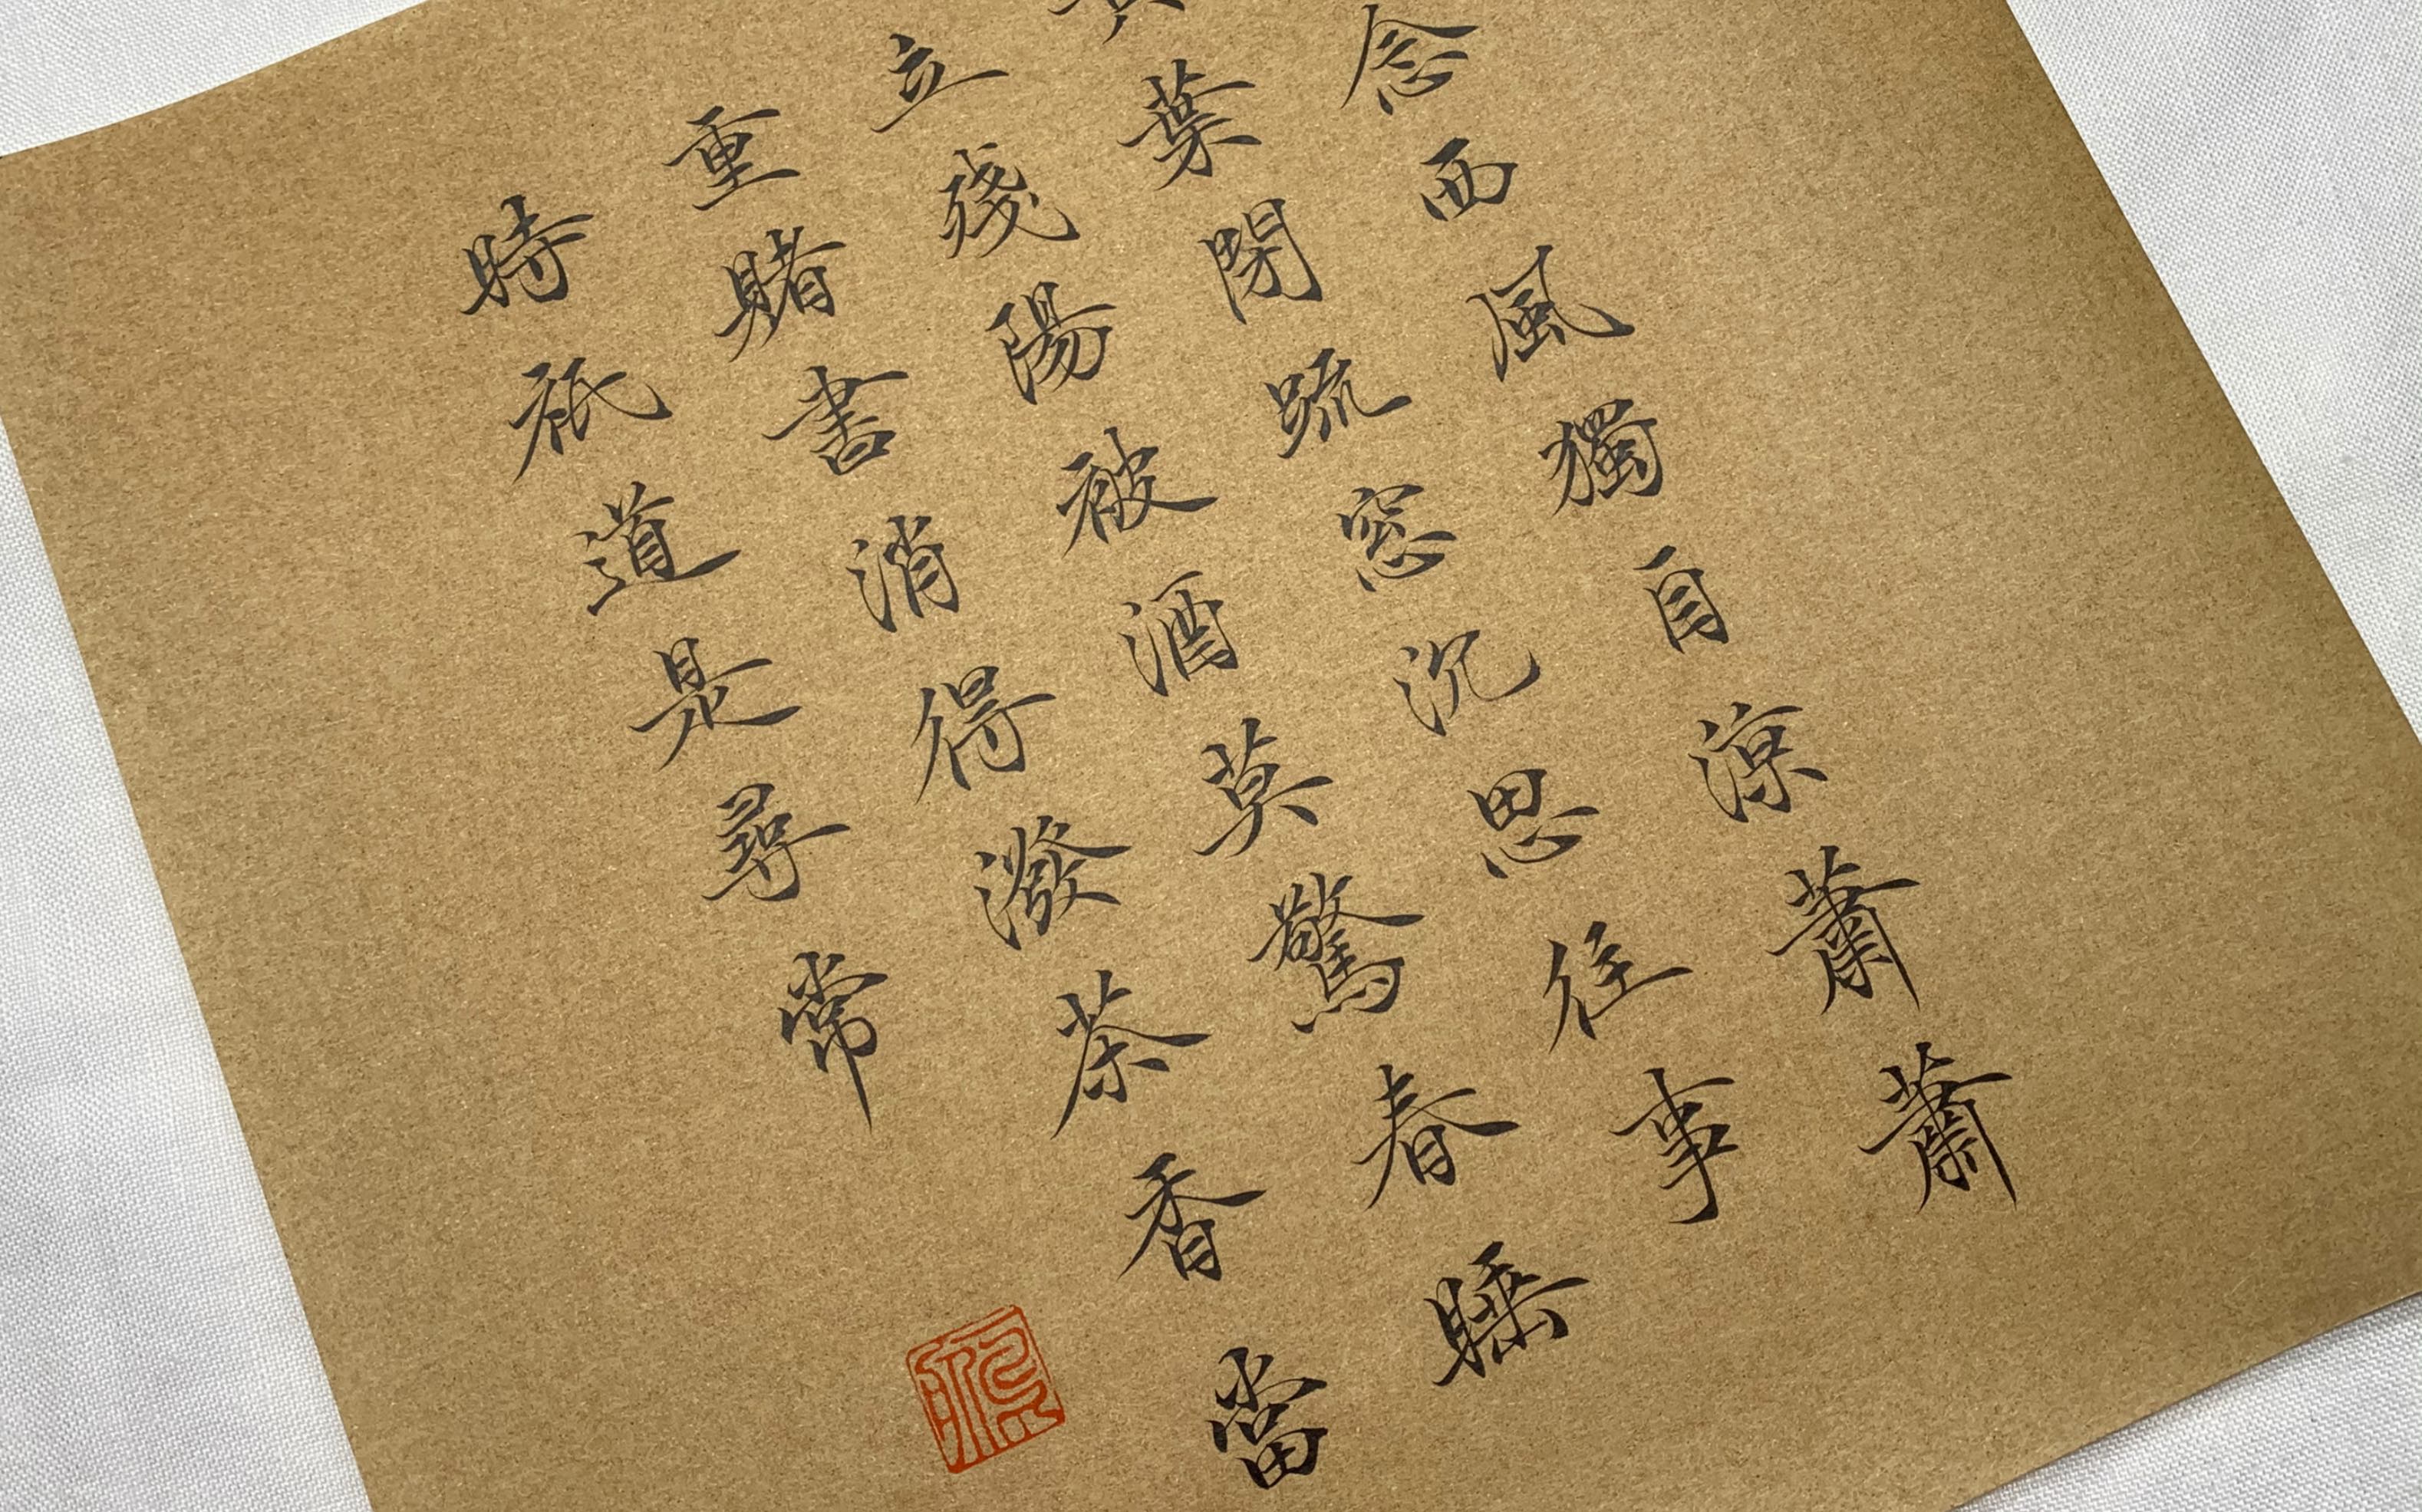 念西風獨自涼蕭蕭
葉閉疏窓沉思往事
立殘陽被酒莫驚春睡
重賭書消得潑茶香當
時祇道是尋常